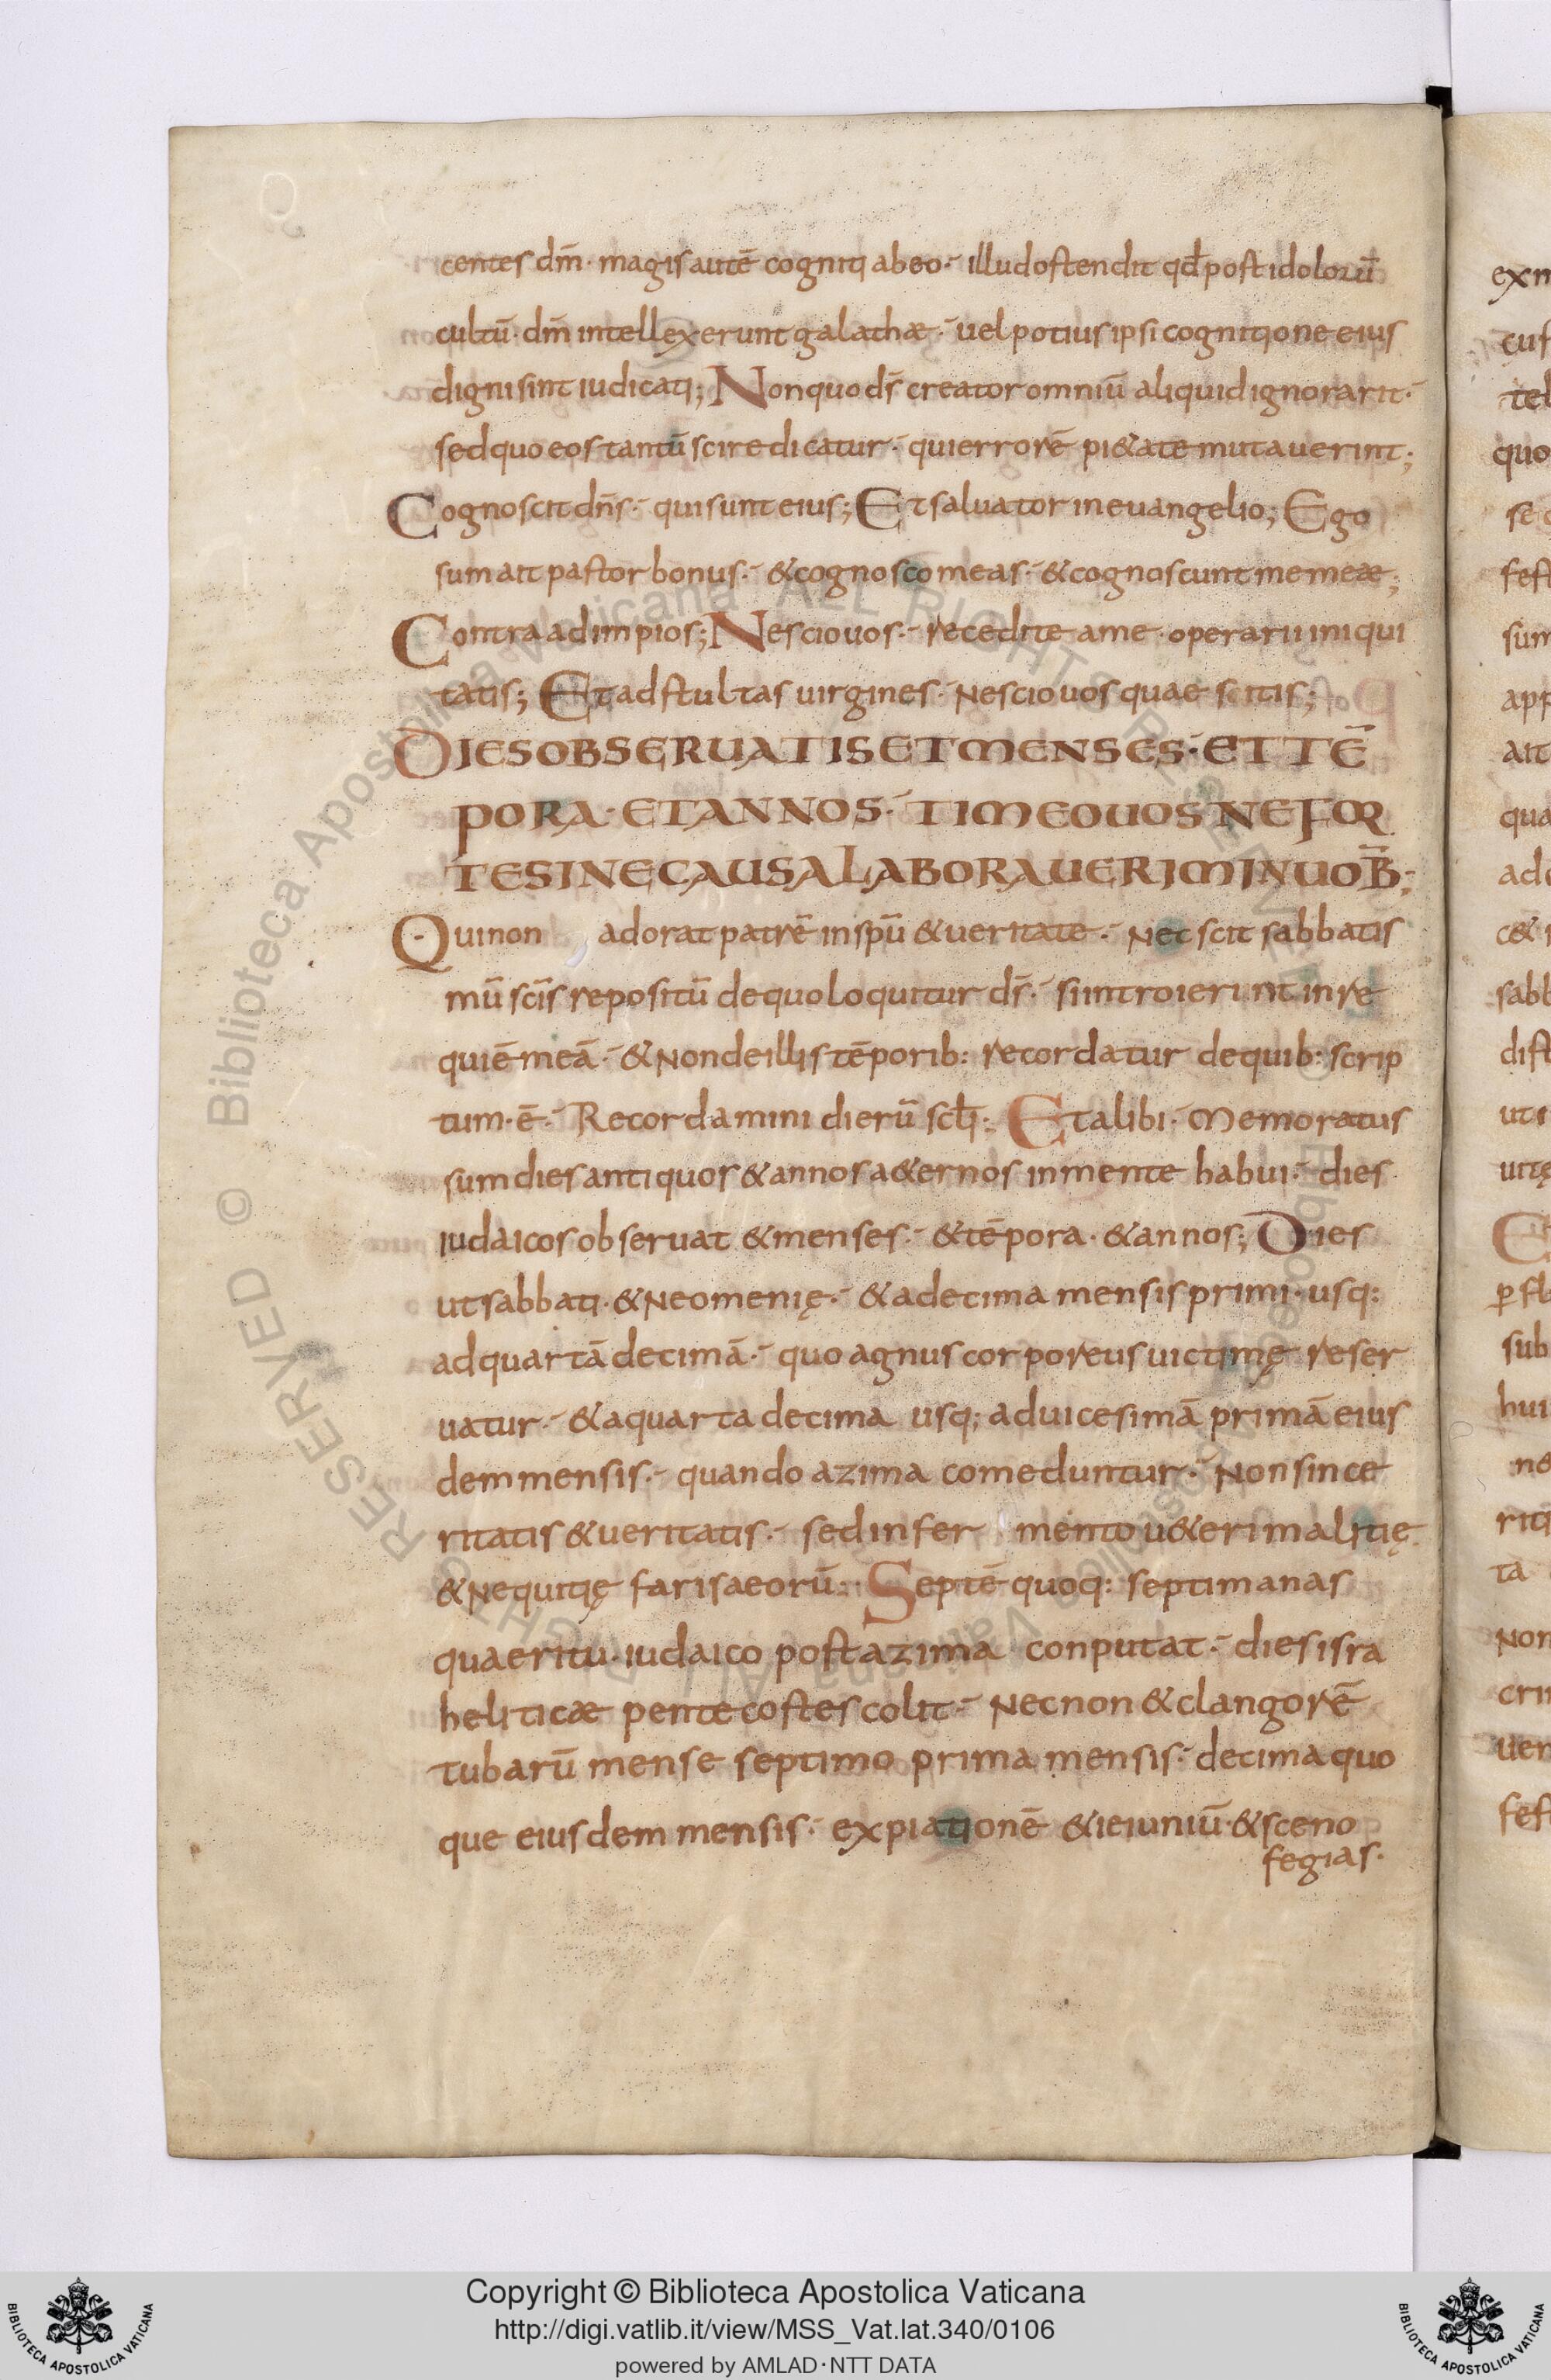 centes dm̄· magis autē cogniti ab eo· illud ostendit qđ post idolorū
cultū· dm̄ intellexerunt galathæ· uel potius ipsi cognitione eius
digni sint iudicati; Non quo ds̄ creator omniū aliquid ignorarit·
sed quo eos tantū scire dicatur· qui errorē pi&ate mutauerint;
Cognoscit dn̄s· qui sunt eius; Et saluator in euangelio; Ego
sum ait pastor bonus· & cognosco meas· & cognoscunt me meæ;
Contra ad impios; Nescio uos· recedite a me· operarii iniqui
tatis; Et ad stultas uirgines· Nescio uos quae sitis;
DIES OBSERUATIS ET MENSES· ET TĒ
PORA· ET ANNOS· TIMEO UOS NE FOR
TE SINE CAUSA LABORAUERIM IN UOB̄;
Qui non adorat patrē in spū & ueritate· Nec scit sabbatis
mū sc̄is repositū de quo loquitur ds̄· si introierint in re
quiē meā· & Non de illis tēporib: recordatur de quib: scrip
tum· ē· Recordamini dierū sc̄li; Et alibi· Memoratus
sum dies antiquos & annos a&ernos in mente habui· dies
iudaicos obseruat & menses· & tēpora· & annos; Dies
ut sabbati· & Neomenię· & a decima mensis primi· usq:
ad quartā decimā· quo agnus corporeus uictimę reser
uatur· & a quarta decima usq; ad uicesimā primā eius
dem mensis· quando azima comeduntur· Non since
ritatis & ueritatis· sed in fer mento u&eri malitię
& Nequitię farisaeorū· Septē quoq: septimanas
quae ritu· iudaico post azima conputat· dies isra
heliticæ pentecostes colit· Nec non & clangorē
tubarū mense septimo prima mensis· decima quo
que eiusdem mensis· expiationē & ieiuniū· & sceno
fegias·
exm
cus
tel
quo
se
fest
sum
app
ait
qua
ade
c&
sabb
dist
ut i
uitę
sub
hui
ne
riti
ta
Non
crim
uer
fest
© Biblioteca Apostolica Vaticana ALL RIGHTS RESERVED
© Biblioteca Apostolica Vaticana ALL RIGHTS RESERVED
Copyright © Biblioteca Apostolica Vaticana
http://digi.vatlib.it/view/MSS_Vat.lat.340/0106
powered by AMLAD·NTT DATA
BIBLIOTECA APOSTOLICA VATICANA
BIBLIOTECA APOSTOLICA VATICANA